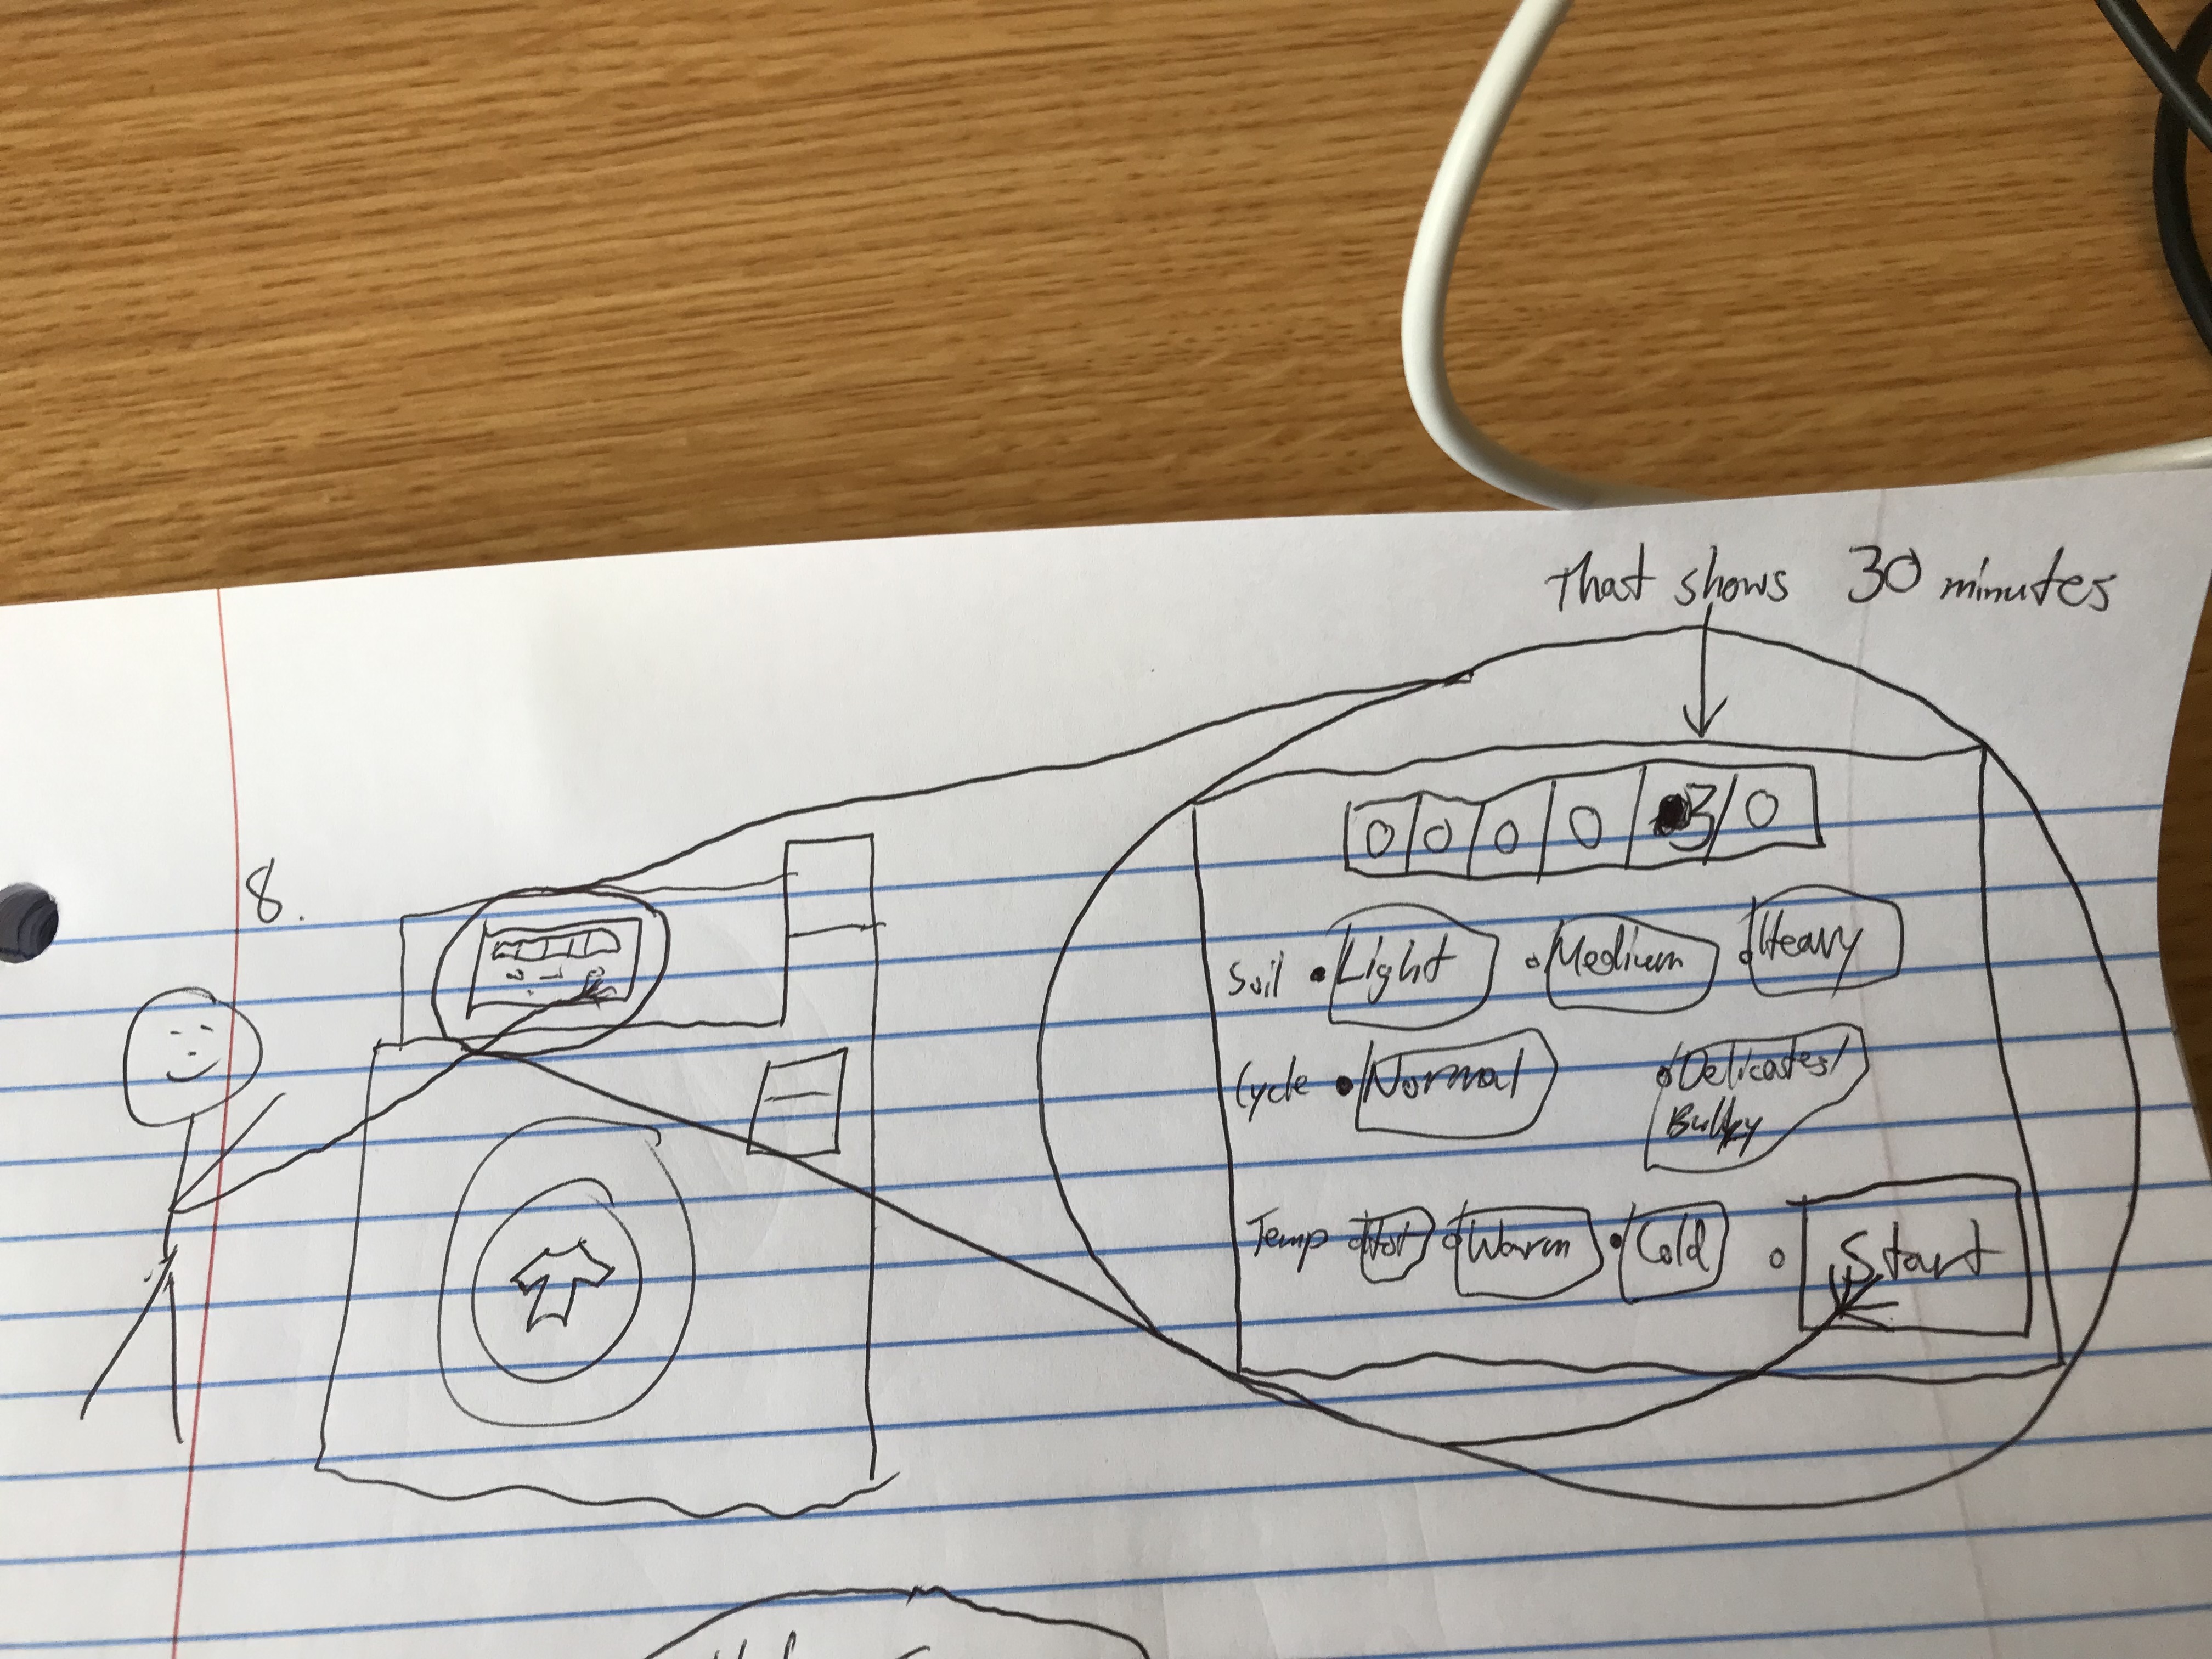 That shows 30 minutes
8.
0 0 0 0 3 0
Soil Light Medium Heavy
Cycle Normal Delicates/
Bulky
Temp Hot Warm Cold Start